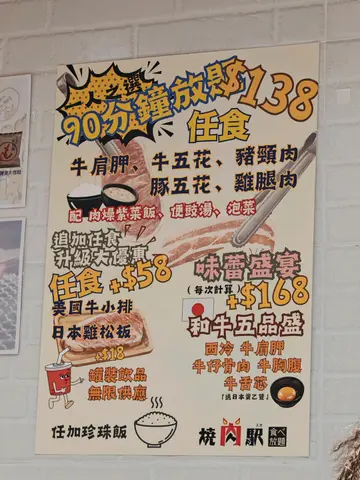 90分鐘放題$138
任食
牛肩胛、牛五花、豬頸肉
豚五花、雞腿肉
配 肉燥紫菜飯、便豉湯、泡菜
追加任食
升級大優惠
任食+$58
美國牛小排
日本雞松板
+$18
罐裝飲品
無限供應
任加珍珠飯
味蕾盛宴
(每次計算)+$168
和牛五品盛
西冷 牛肩胛
牛仔骨肉 牛胸腹
牛舌芯
燒肉駅 食べ放題